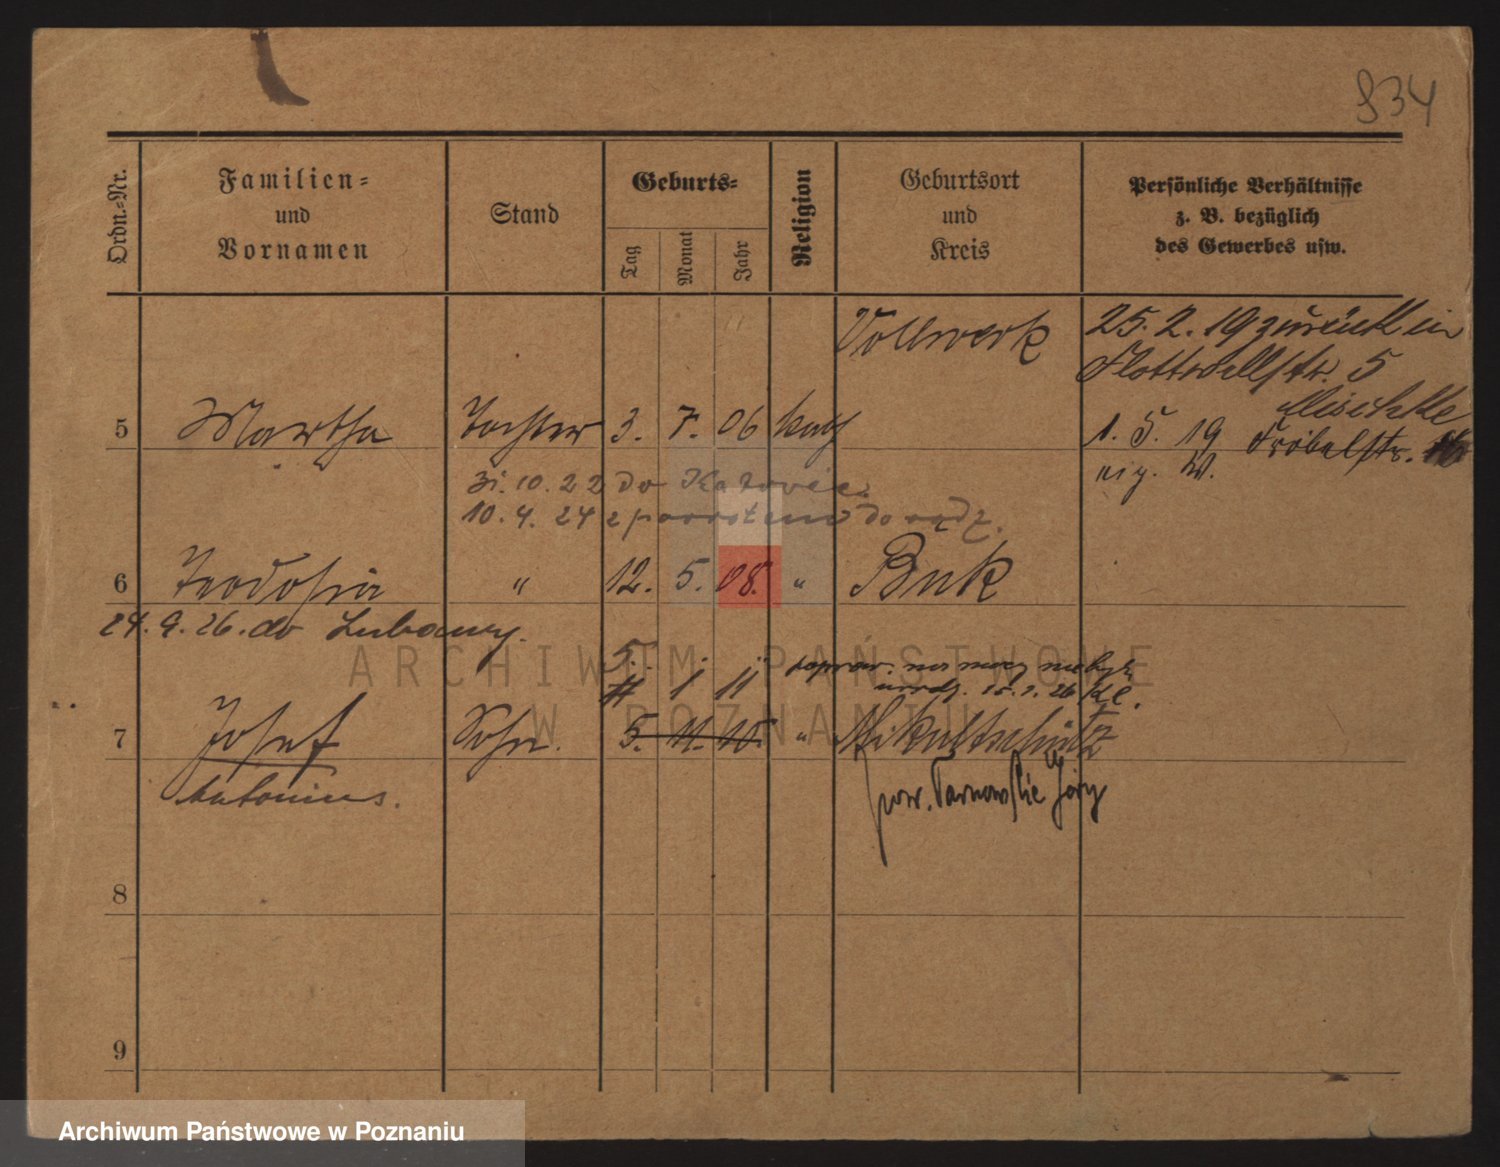 834
Ordn.-Nr.
Familien-
und
Vornamen
Stand
Geburts-
Tag
Monat
Jahr
Religion
Geburtsort
und
Kreis
Persönliche Verhältnisse
z. B. bezüglich
des Gewerbes usw.
Vollwerk
25. 2. 19 zurück in
Flottwellstr. 5
5 Martha Tochter 3. 7. 06 kath
1. 5. 19 Fröbelstr.
eig. W.
31. 10. 22 do Katowic.
10. 4. 24 z powrotem do
6 Teodosia " 12. 5. 08. " Buk
24. 9. 26. do Lubawy.
5. 1 11
15. 2. 26
7 Josef Sohn. 5. 11. 10. " Mikultschütz
Antonius.
pow. Tarnowskie Góry
8
9
ARCHIWUM PAŃSTWOWE
W POZNANIU
Archiwum Państwowe w Poznaniu